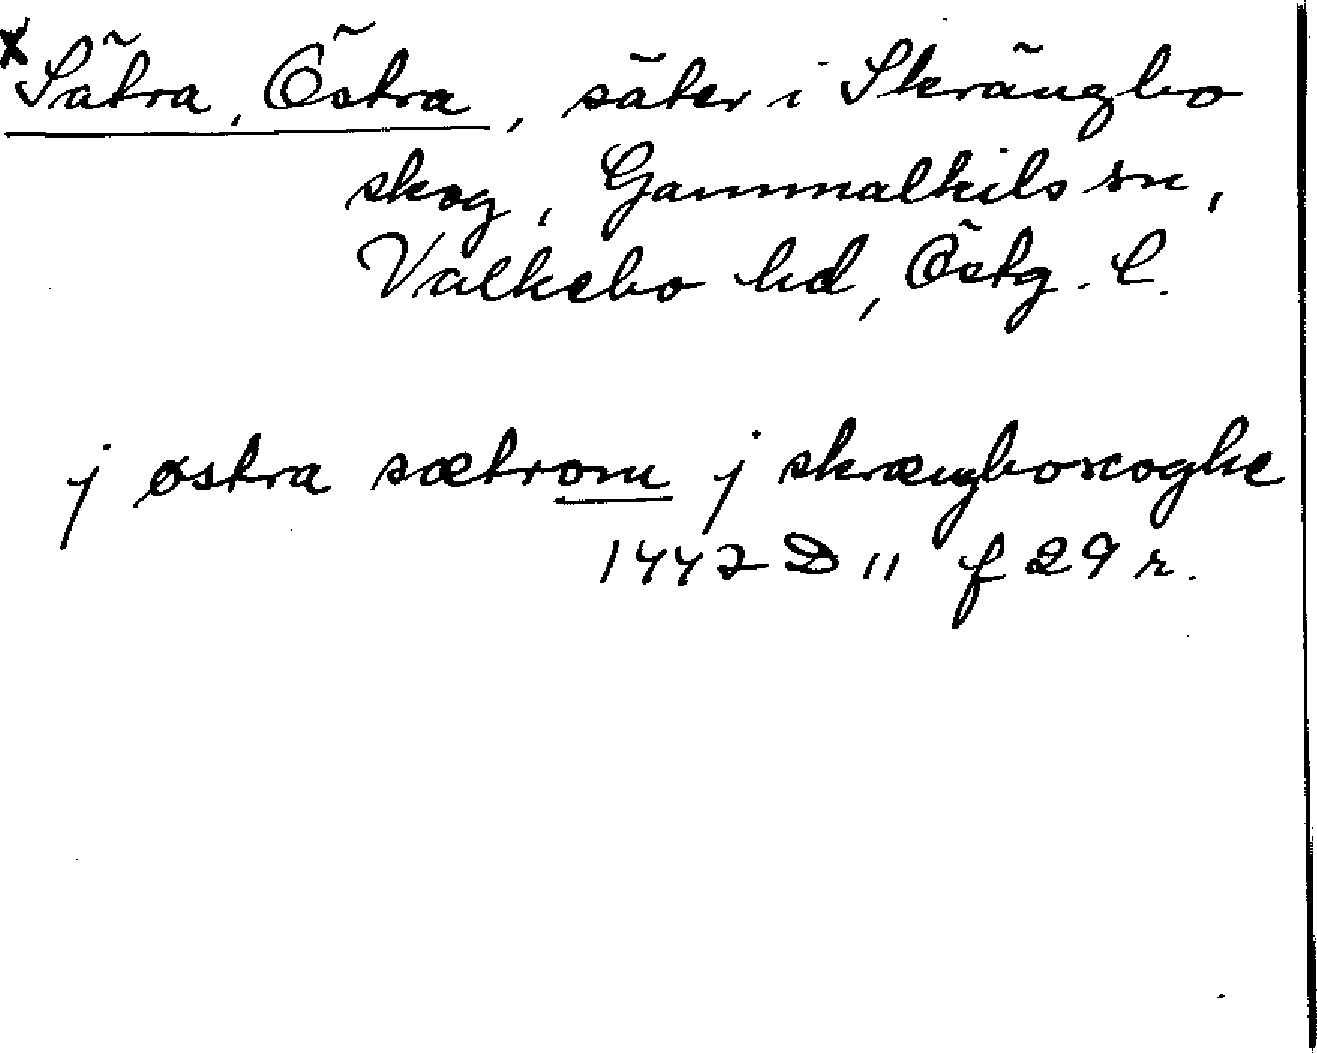 x Sätra, Östra, säter i Skrängbo
skog, Gammalkils sn,
Valkebo hd, Östg. l.
j østra sætrom j skrængboscoghe
1442 D 11 f 29 r.